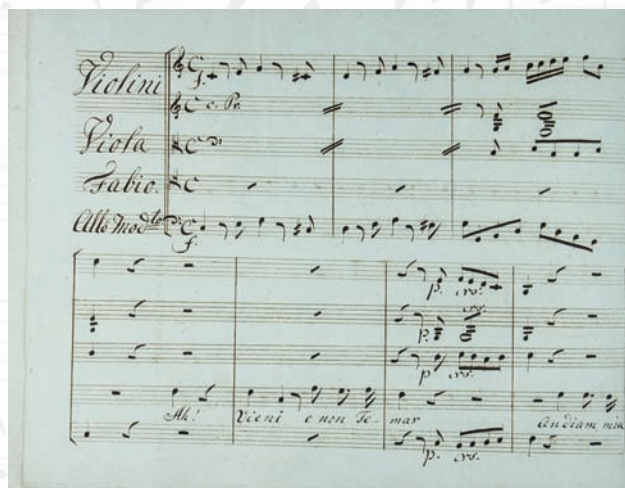 Violini
f.
c. Pr.
Viola
Fabio.
All.o Mod.to
f.
p. crs.
crs.
p.
p. crs.
Ah! Vieni e non Te- mar Andiam mia
p. crs.